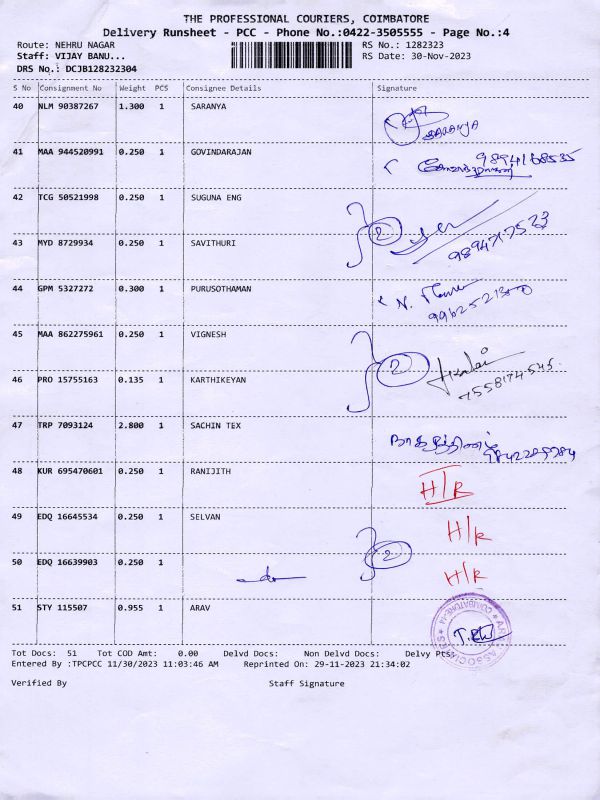 THE PROFESSIONAL COURIERS, COIMBATORE
Delivery Runsheet - PCC - Phone No.:0422-3505555 - Page No.:4
Route: NEHRU NAGAR RS No.: 1282323
Staff: VIJAY BANU... RS Date: 30-Nov-2023
DRS No.: DCJB128232304
S No Consignment No Weight PCS Consignee Details Signature
40 NLM 90387267 1.300 1 SARANYA
SARANYA
41 MAA 944520991 0.250 1 GOVINDARAJAN
42 TCG 50521998 0.250 1 SUGUNA ENG
2
43 MYD 8729934 0.250 1 SAVITHURI
44 GPM 5327272 0.300 1 PURUSOTHAMAN
45 MAA 862275961 0.250 1 VIGNESH
2
46 PRO 15755163 0.135 1 KARTHIKEYAN
7558174545
47 TRP 7093124 2.800 1 SACHIN TEX
48 KUR 695470601 0.250 1 RANIJITH H/R
49 EDQ 16645534 0.250 1 SELVAN H/R
2
50 EDQ 16639903 0.250 1 H/R
51 STY 115507 0.955 1 ARAV
Tot Docs: 51 Tot COD Amt: 0.00 Delvd Docs: Non Delvd Docs: Delvy Pts:
Entered By :TPCPCC 11/30/2023 11:03:46 AM Reprinted On: 29-11-2023 21:34:02
Verified By Staff Signature